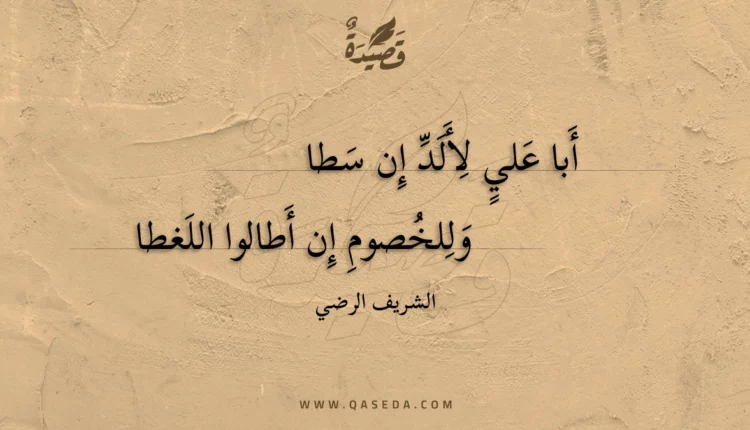 قَصِيْدَةٌ
أَبا عَليٍ لِأَلَدِّ إِن سَطا
وَلِلخُصومِ إِن أَطالوا اللَغطا
الشريف الرضي
WWW.QASEDA.COM